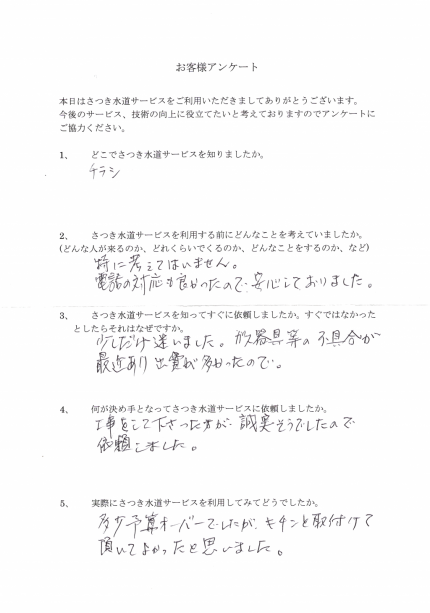 お客様アンケート
本日はさつき水道サービスをご利用いただきましてありがとうございます。
今後のサービス、技術の向上に役立てたいと考えておりますのでアンケートに
ご協力ください。
1、 どこでさつき水道サービスを知りましたか。
チラシ
2、 さつき水道サービスを利用する前にどんなことを考えていましたか。
(どんな人が来るのか、どれくらいでくるのか、どんなことをするのか、など)
特に考えてはいません。
電話の対応も良かったので、安心しておりました。
3、 さつき水道サービスを知ってすぐに依頼しましたか。すぐではなかった
としたらそれはなぜですか。
少しだけ迷いました。ガス器具等の不具合が
最近あり出費が多かったので。
4、 何が決め手となってさつき水道サービスに依頼しましたか。
工事をして下さった方が、誠実そうでしたので
依頼しました。
5、 実際にさつき水道サービスを利用してみてどうでしたか。
多少予算オーバーでしたが、キチンと取付けて
頂いてよかったと思いました。